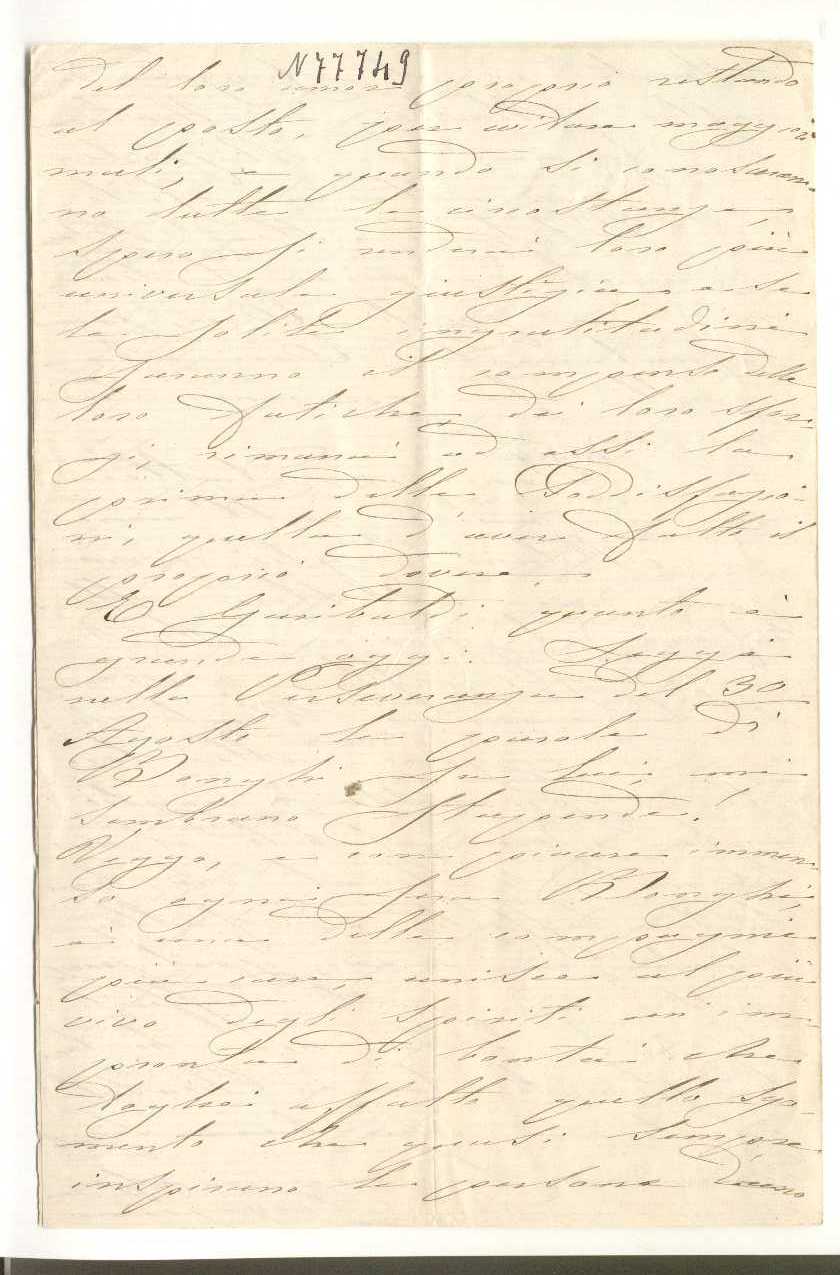 N77749
del loro amor proprio restando
al posto, per evitare maggiori
mali, e quando si conosceran-
no tutte le circostanze,
spero si renderà loro più
universale giustizia, e se
le solite ingratitudini
saranno il compenso delle
loro fatiche, dei loro sfor-
zi, rimarrà ad essi la
prima delle soddisfazio-
ni, quella d'aver fatto il
proprio dovere. –
E Garibaldi quanto è
grande oggi. Legga
nella Perseveranza del 30
Agosto le parole di
Bonghi su lui, mi
sembrano stupende!
Veggo, e con piacere immen-
so ogni sera Bonghi,
è una delle compagnie
più care, unisce al più
vivo degli spiriti un'im-
pronta di bontà che
toglie affatto quello sgo-
mento che quasi sempre
inspirano le persone